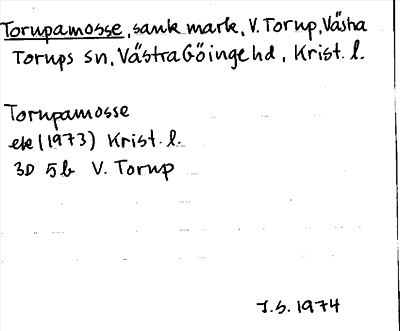 Torupamosse, sank mark, V. Torup, Västra
Torups sn, Västra Göinge hd, Krist. l.
Torupamosse
ek (1973) Krist. l.
3D 5b V. Torup
J.S. 1974